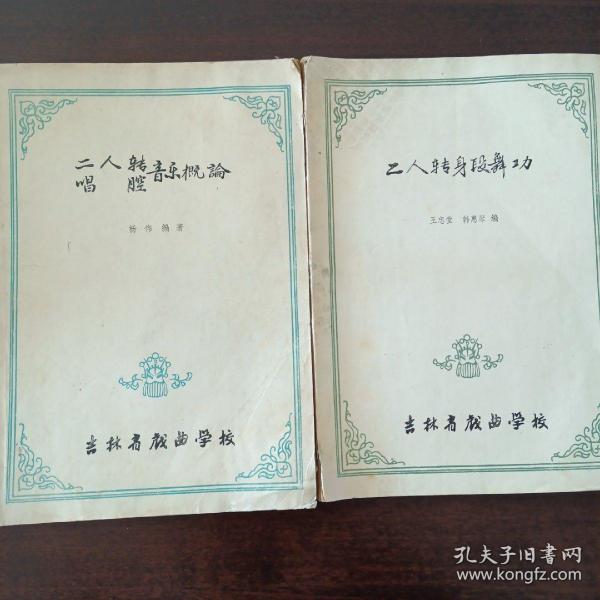 二人转
唱腔
音乐概論
杨伟 编著
吉林省戏曲学校
二人转身段舞功
王忠堂 韩惠琴 编
吉林省戏曲学校
孔夫子旧书网
www.kongfz.com